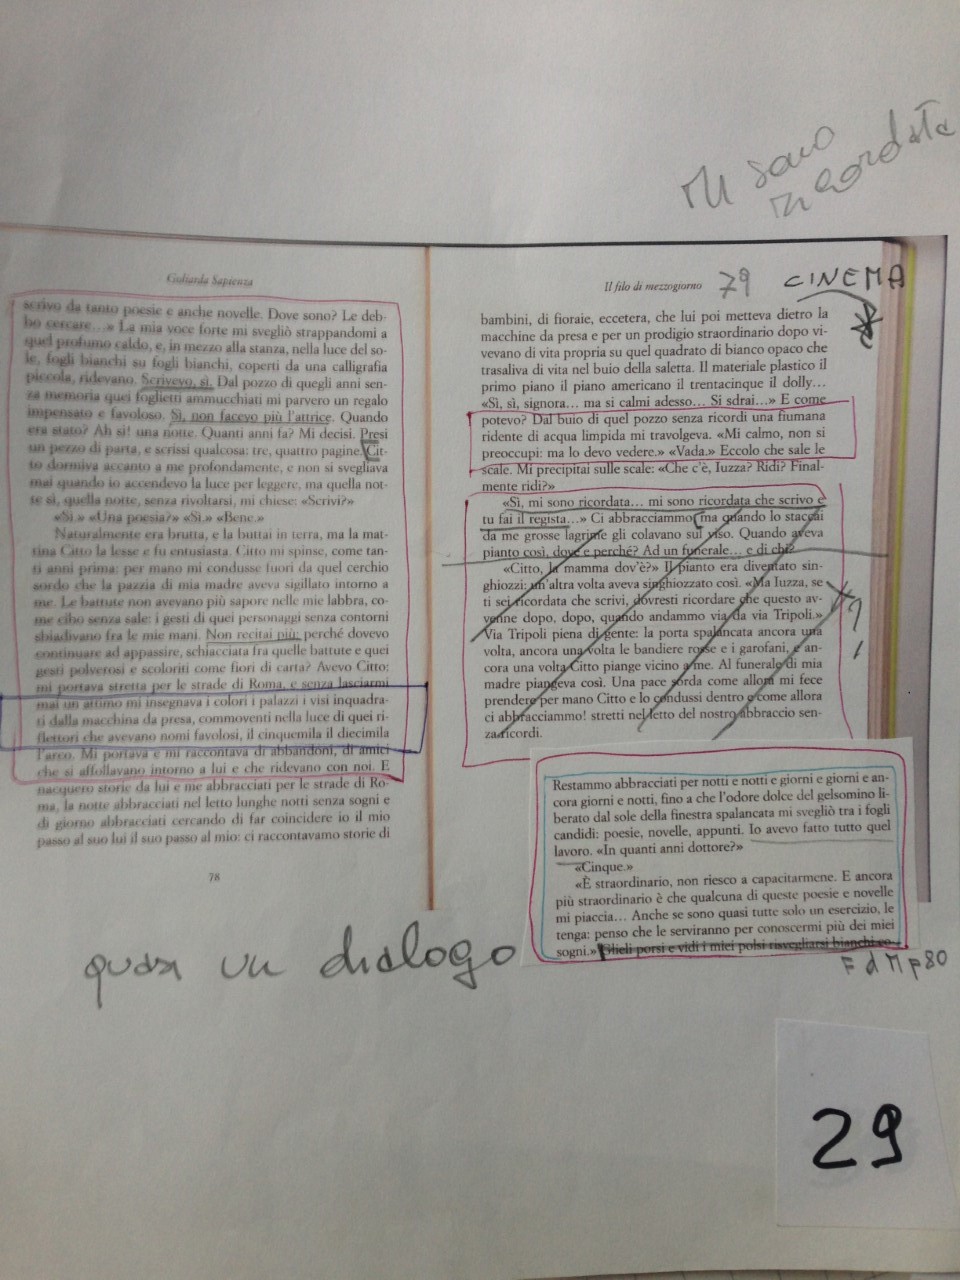 Mi sono
ricordata
Goliarda Sapienza
scrivo da tanto poesie e anche novelle. Dove sono? Le deb-
bo cercare…» La mia voce forte mi svegliò strappandomi a
quel profumo caldo, e, in mezzo alla stanza, nella luce del so-
le, fogli bianchi su fogli bianchi, coperti da una calligrafia
piccola, ridevano. Scrivevo, sì. Dal pozzo di quegli anni sen-
za memoria quei foglietti ammucchiati mi parvero un regalo
impensato e favoloso. Sì, non facevo più l'attrice. Quando
era stato? Ah sì! una notte. Quanti anni fa? Mi decisi. Presi
un pezzo di carta, e scrissi qualcosa: tre, quattro pagine. Cit-
to dormiva accanto a me profondamente, e non si svegliava
mai quando io accendevo la luce per leggere, ma quella not-
te sì, quella notte, senza rivoltarsi, mi chiese: «Scrivi?»
«Sì.» «Una poesia?» «Sì.» «Bene.»
Naturalmente era brutta, e la buttai in terra, ma la mat-
tina Citto la lesse e fu entusiasta. Citto mi spinse, come tan-
ti anni prima: per mano mi condusse fuori da quel cerchio
sordo che la pazzia di mia madre aveva sigillato intorno a
me. Le battute non avevano più sapore nelle mie labbra, co-
me cibo senza sale: i gesti di quei personaggi senza contorni
sbiadivano fra le mie mani. Non recitai più: perché dovevo
continuare ad appassire, schiacciata fra quelle battute e quei
gesti polverosi e scoloriti come fiori di carta? Avevo Citto:
mi portava stretta per le strade di Roma, e senza lasciarmi
mai un attimo mi insegnava i colori i palazzi i visi inquadra-
ti dalla macchina da presa, commoventi nella luce di quei ri-
flettori che avevano nomi favolosi, il cinquemila il diecimila
l'arco. Mi portava e mi raccontava di abbandoni, di amici
che si affollavano intorno a lui e che ridevano con noi. E
nacquero storie da lui e me abbracciati per le strade di Ro-
ma, la notte abbracciati nel letto lunghe notti senza sogni e
di giorno abbracciati cercando di far coincidere io il mio
passo al suo lui il suo passo al mio: ci raccontavamo storie di
78
Il filo di mezzogiorno
79
CINEMA
bambini, di fioraie, eccetera, che lui poi metteva dietro la
macchine da presa e per un prodigio straordinario dopo vi-
vevano di vita propria su quel quadrato di bianco opaco che
trasaliva di vita nel buio della saletta. Il materiale plastico il
primo piano il piano americano il trentacinque il dolly…
«Sì, sì, signora… ma si calmi adesso… Si sdrai…» E come
potevo? Dal buio di quel pozzo senza ricordi una fiumana
ridente di acqua limpida mi travolgeva. «Mi calmo, non si
preoccupi: ma lo devo vedere.» «Vada.» Eccolo che sale le
scale. Mi precipitai sulle scale: «Che c'è, Iuzza? Ridi? Final-
mente ridi?»
«Sì, mi sono ricordata… mi sono ricordata che scrivo e
tu fai il regista…» Ci abbracciammo, ma quando lo staccai
da me grosse lagrime gli colavano sul viso. Quando aveva
pianto così, dove e perché? Ad un funerale… e di chi?
«Citto, la mamma dov'è?» Il pianto era diventato sin-
ghiozzi: un'altra volta aveva singhiozzato così. «Ma Iuzza, se
ti sei ricordata che scrivi, dovresti ricordare che questo av-
venne dopo, dopo, quando andammo via da via Tripoli.»
Via Tripoli piena di gente: la porta spalancata ancora una
volta, ancora una volta le bandiere rosse e i garofani, e an-
cora una volta Citto piange vicino a me. Al funerale di mia
madre piangeva così. Una pace sorda come allora mi fece
prendere per mano Citto e lo condussi dentro e come allora
ci abbracciammo! stretti nel letto del nostro abbraccio sen-
za ricordi.
Restammo abbracciati per notti e notti e giorni e giorni e an-
cora giorni e notti, fino a che l'odore dolce del gelsomino li-
berato dal sole della finestra spalancata mi svegliò tra i fogli
candidi: poesie, novelle, appunti. Io avevo fatto tutto quel
lavoro. «In quanti anni dottore?»
«Cinque.»
«È straordinario, non riesco a capacitarmene. E ancora
più straordinario è che qualcuna di queste poesie e novelle
mi piaccia… Anche se sono quasi tutte solo un esercizio, le
tenga: penso che le serviranno per conoscermi più dei miei
sogni.» Glieli porsi e vidi i miei polsi risvegliarsi bianchi co-
F d M p 80
quasi un dialogo
29